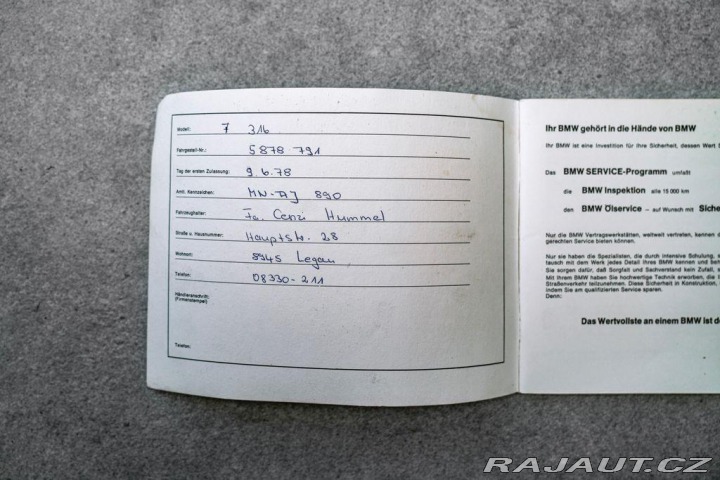 Modell: 7 316
Fahrgestell-Nr.: 5878 791
Tag der ersten Zulassung: 9.6.78
Amtl. Kennzeichen: MN-AJ 890
Fahrzeughalter: Fa. Cenzi Hummel
Straße u. Hausnummer: Hauptstr. 28
Wohnort: 8945 Legau
Telefon: 08330-211
Händleranschrift:
(Firmenstempel)
Telefon:
Ihr BMW gehört in die Hände von BMW
Ihr BMW ist eine Investition für Ihre Sicherheit, dessen Wert
Das BMW SERVICE-Programm umfaßt
die BMW Inspektion alle 15 000 km
den BMW Ölservice – auf Wunsch mit Siche
Nur die BMW Vertragswerkstätten, weltweit vertreten, kennen
gerechten Service bieten können.
Nur sie haben die Spezialisten, die durch intensive Schulung,
tausch mit dem Werk jedes Detail Ihres BMW kennen und
Sie sorgen dafür, daß Sorgfalt und Sachverstand kein Zufall,
Mit Ihrem BMW haben Sie hochwertige Technik erworben, die
Straßenverkehr teilzunehmen. Diese Sicherheit in Konstruktion,
indem Sie am qualifizierten Service sparen.
Denn:
Das Wertvollste an einem BMW ist
RAJAUT.CZ